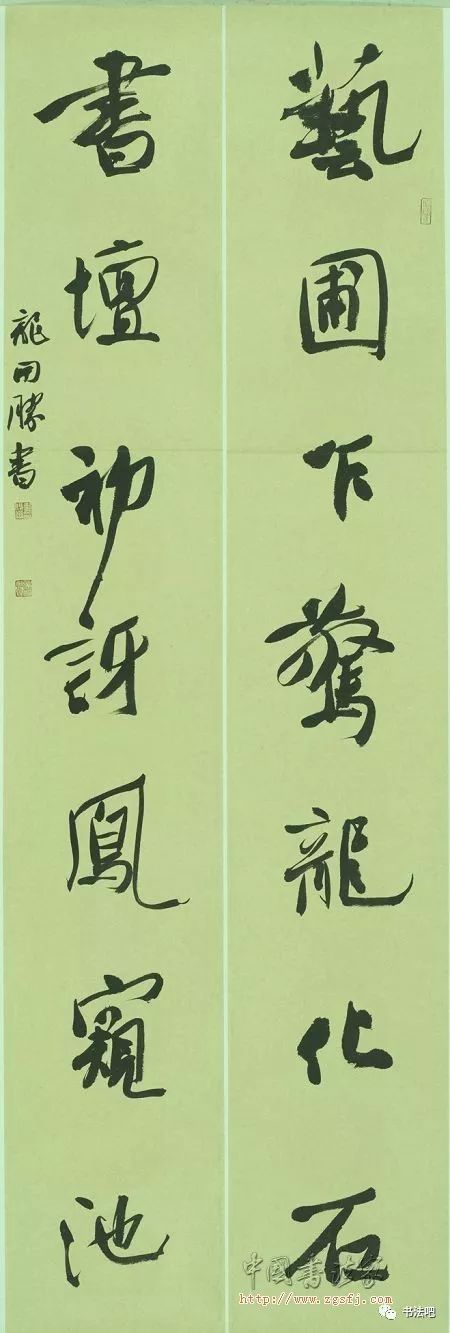 藝圃乍驚龍化石
書壇初訝鳳窺池
龍開勝書
中國書法家
http://www.zgsfj.com
书法吧